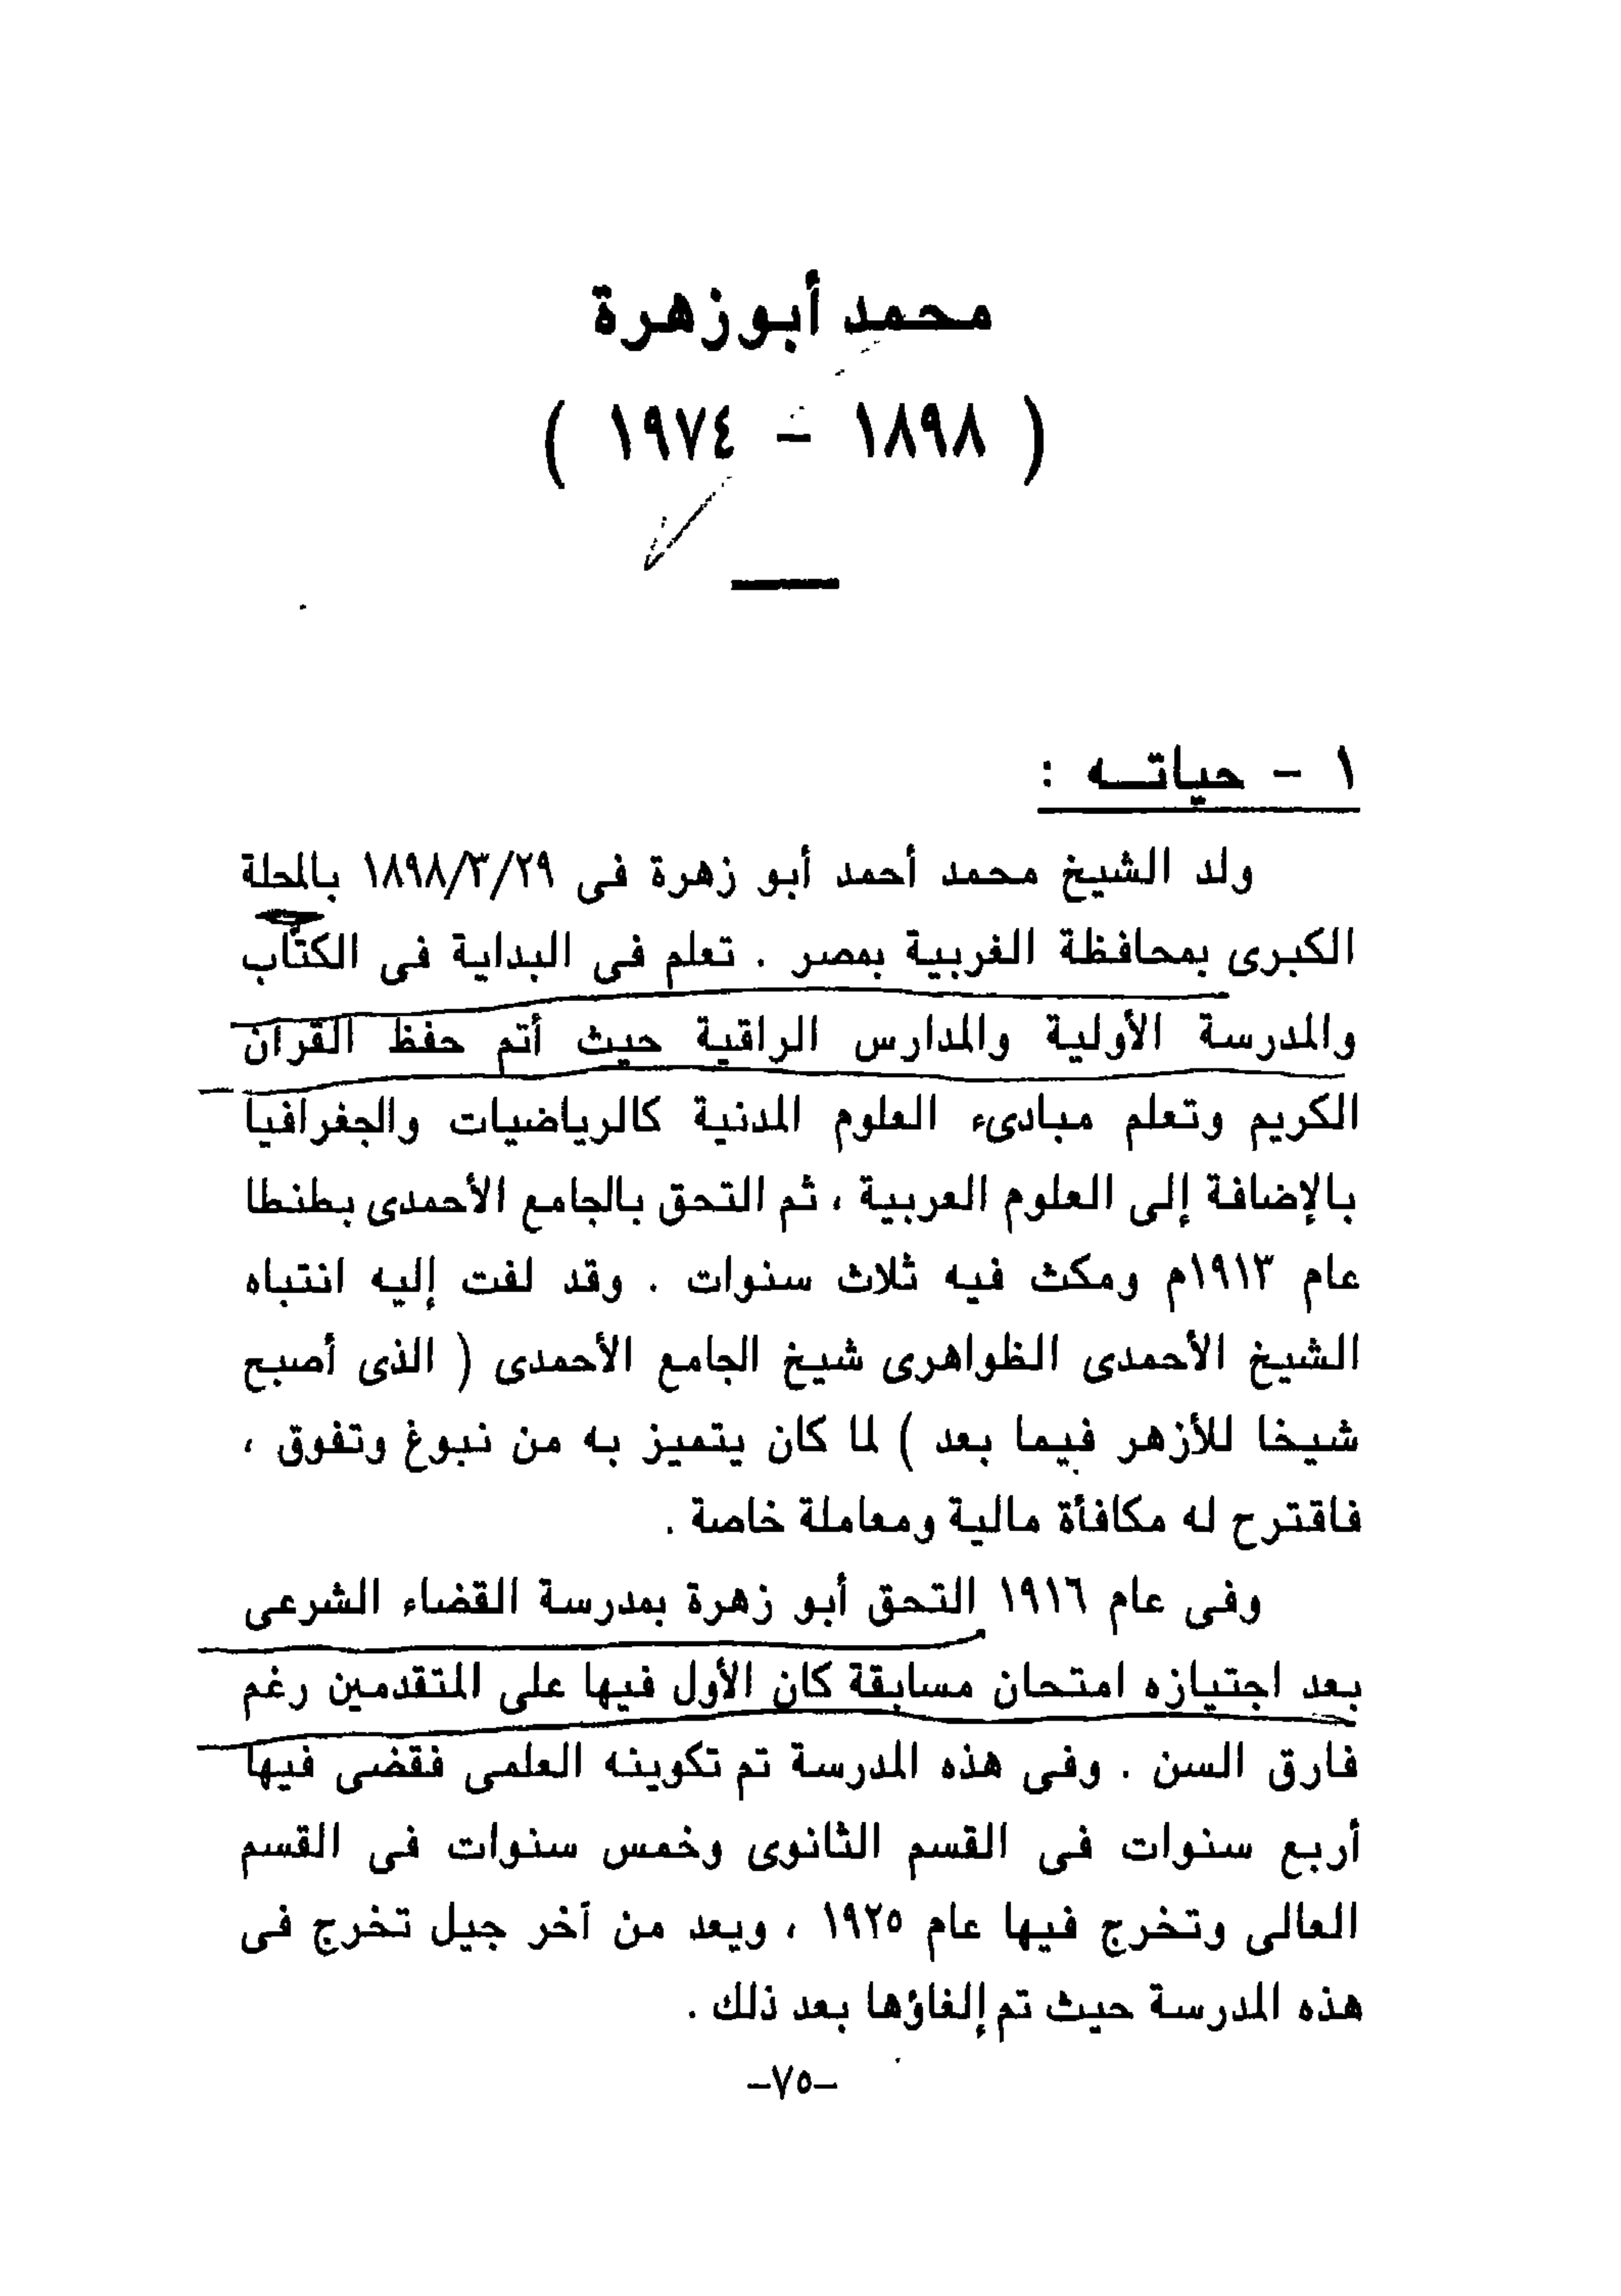 محمد أبو زهرة
( ١٨٩٨ - ١٩٧٤ )
١ - حياتـــه :
ولد الشيخ محمد أحمد أبو زهرة فى ١٨٩٨/٣/٢٩ بالمحلة
الكبرى بمحافظة الغربية بمصر . تعلم فى البداية فى الكتّاب
والمدرسة الأولية والمدارس الراقية حيث أتم حفظ القرآن
الكريم وتعلم مبادىء العلوم المدنية كالرياضيات والجغرافيا
بالإضافة إلى العلوم العربية ، ثم التحق بالجامع الأحمدى بطنطا
عام ١٩١٣م ومكث فيه ثلاث سنوات . وقد لفت إليه انتباه
الشيخ الأحمدى الظواهرى شيخ الجامع الأحمدى ( الذى أصبح
شيخا للأزهر فيما بعد ) لما كان يتميز به من نبوغ وتفوق ،
فاقترح له مكافأة مالية ومعاملة خاصة .
وفى عام ١٩١٦ التحق أبو زهرة بمدرسة القضاء الشرعى
بعد اجتيازه امتحان مسابقة كان الأول فيها على المتقدمين رغم
فارق السن . وفى هذه المدرسة تم تكوينه العلمى فقضى فيها
أربع سنوات فى القسم الثانوى وخمس سنوات فى القسم
العالى وتخرج فيها عام ١٩٢٥ ، ويعد من آخر جيل تخرج فى
هذه المدرسة حيث تم إلغاؤها بعد ذلك .
-٧٥-